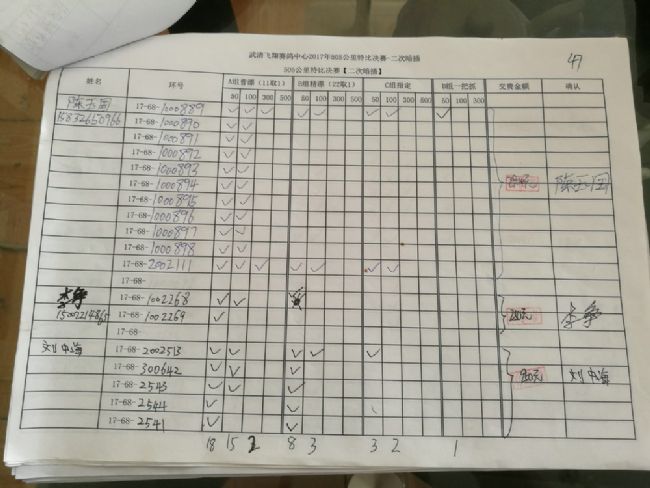 武清飞翔赛鸽中心2017年505公里特比决赛-二次暗插
47
505公里特比决赛【二次暗插】
姓名 环号 A组普漂（11取1） B组精漂（22取1） C组指定 D组一把抓 交费金额 确认
50 100 300 500 50 100 300 500 50 100 300 500 50 100 300
陈玉国 17-68-1000889 ✓ ✓ ✓ ✓ ✓ ✓ ✓ ✓
17-68-1000890 ✓ ✓
17-68-1000891 ✓ ✓
17-68-1000892 ✓ ✓
17-68-1000893 ✓ ✓
17-68-1000894 ✓ ✓ 陈玉国
17-68-1000895 ✓ ✓
17-68-1000896 ✓ ✓
17-68-1000897 ✓ ✓
17-68-1000898 ✓ ✓
17-68-2002111 ✓ ✓ ✓ ✓ ✓ ✓ ✓
17-68-
李争 17-68-1002268 ✓ ✓
15002214865 17-68-1002269 ✓ 元 李争
17-68-
刘中海 17-68-2002513 ✓ ✓ ✓ ✓ ✓
17-68-300642 ✓ ✓ ✓ 元 刘中海
17-68-2543 ✓ ✓ ✓
17-68-2544 ✓ ✓
17-68-2541 ✓ ✓
18 15 2 8 3 3 2 1